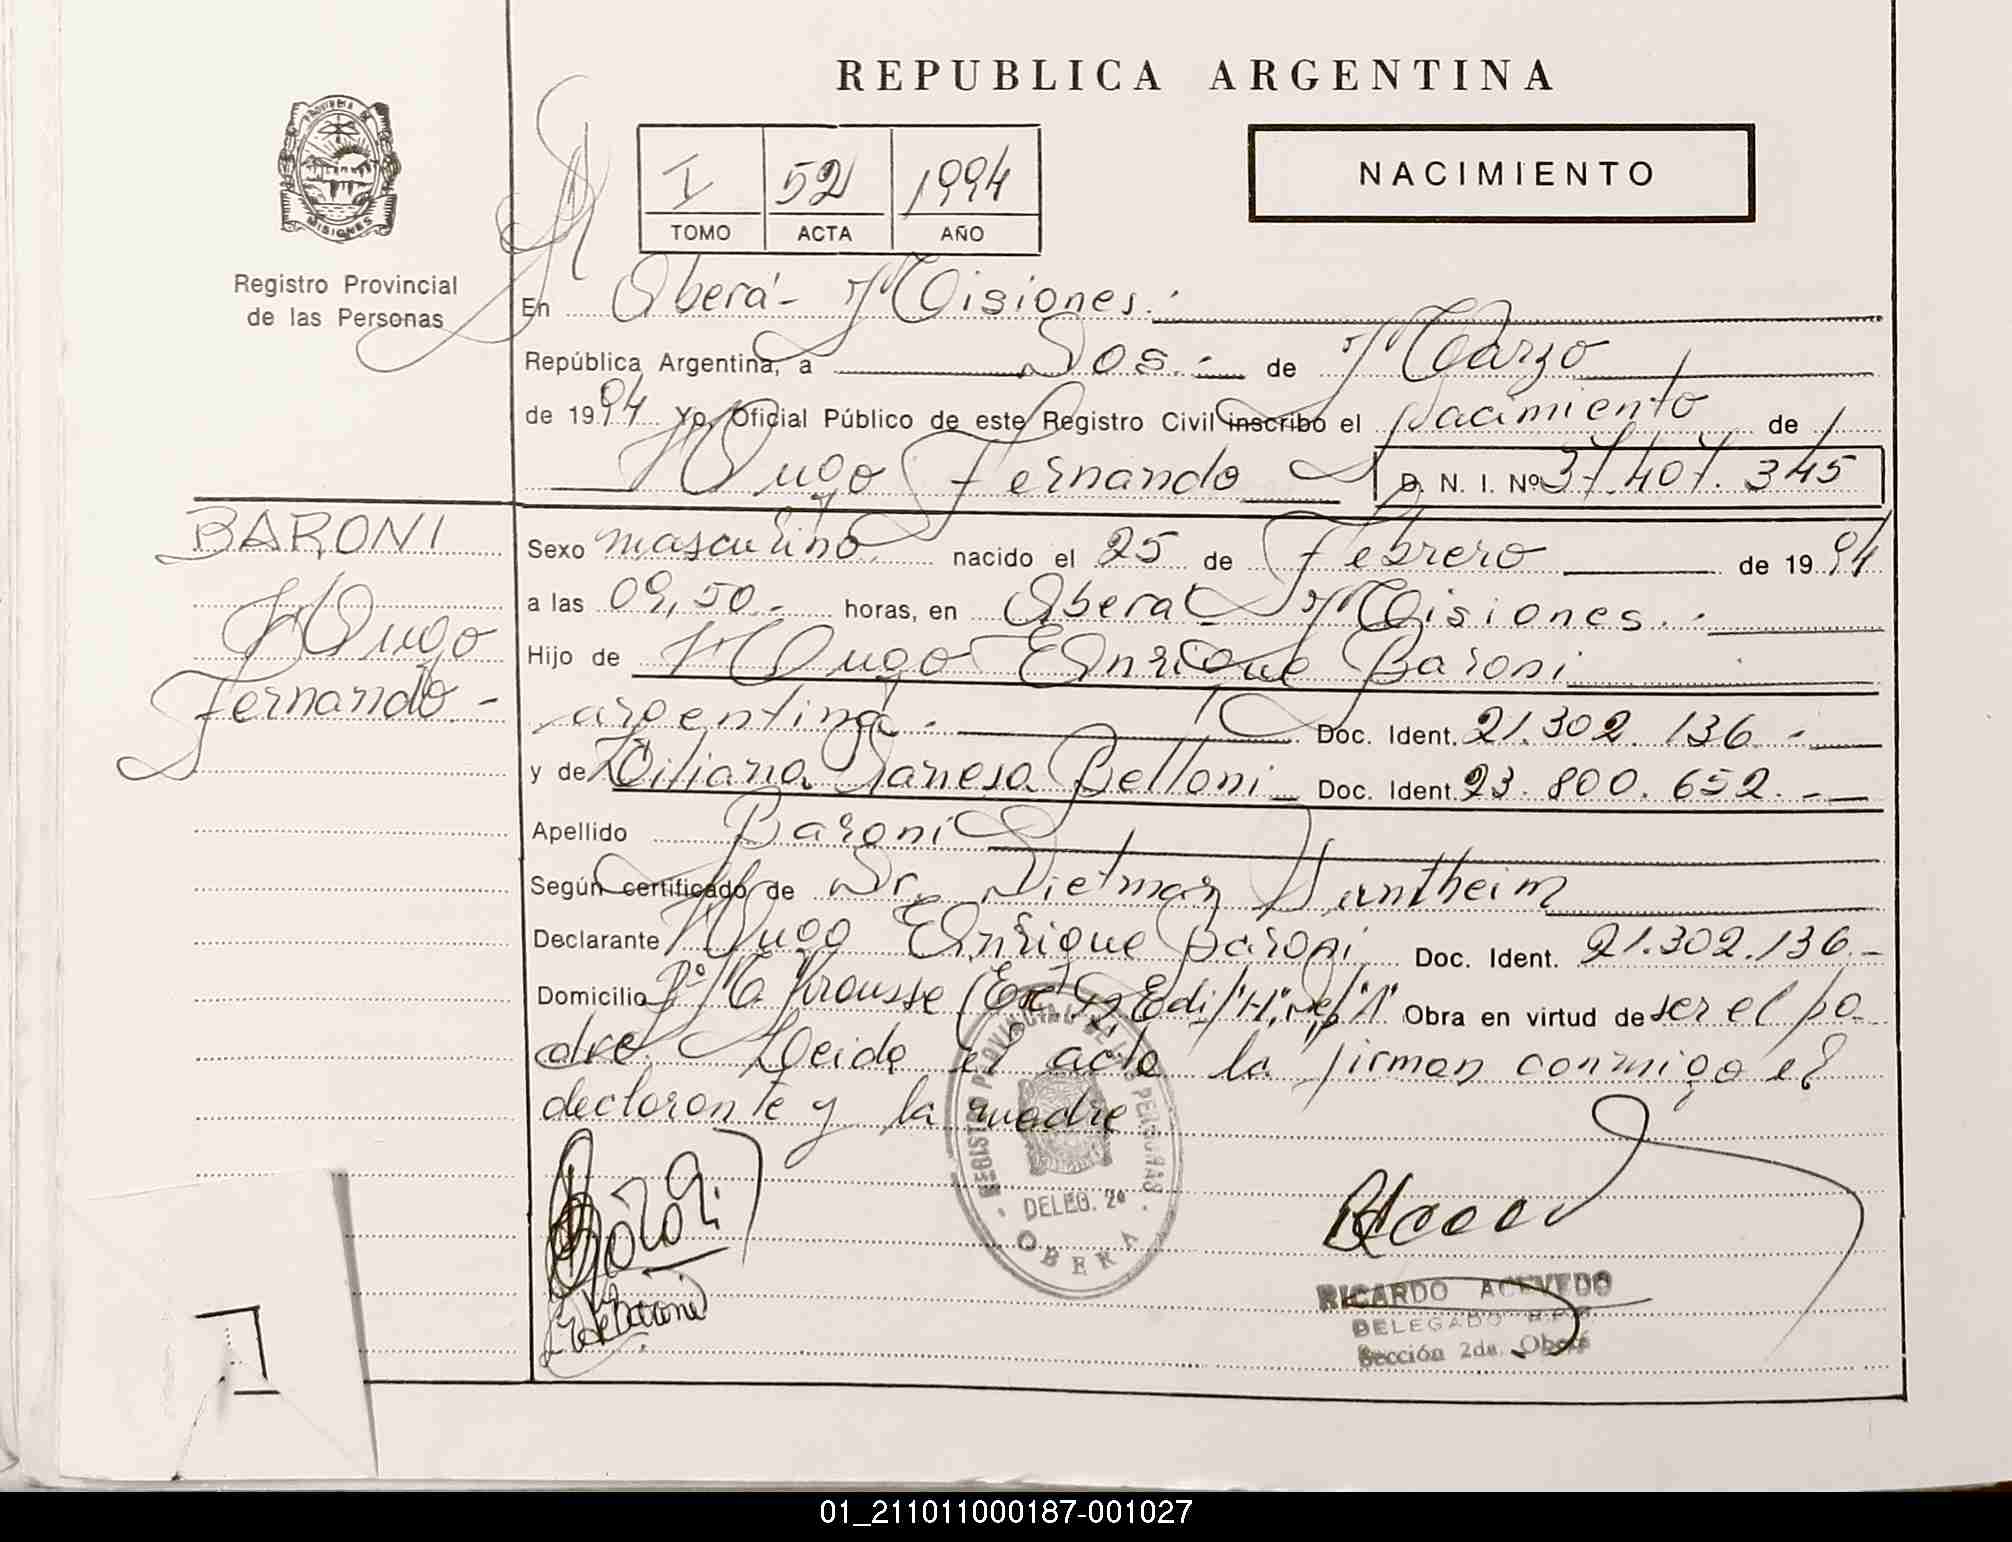 REPUBLICA ARGENTINA
PROVINCIA DE
MISIONES
Registro Provincial
de las Personas
I 52 1994
TOMO ACTA AÑO
NACIMIENTO
En Oberá - Misiones.-
República Argentina, a Dos.- de Marzo
de 1994 Yo, Oficial Público de este Registro Civil inscribo el nacimiento de
Hugo Fernando D. N. I. Nº 37.407.345
BARONI
Hugo
Fernando.-
Sexo masculino nacido el 25 de Febrero de 1994
a las 09,50.- horas, en Oberá - Misiones.-
Hijo de Hugo Enrique Baroni
argentina.- Doc. Ident. 21.302.136.-
y de Liliana Vanesa Belloni Doc. Ident. 23.800.652.-
Apellido Baroni
Según certificado de Dr. Dietmar
Declarante Hugo Enrique Baroni Doc. Ident. 21.302.136.-
Domicilio Krausse Obra en virtud de ser el pa-
dre. Leida el acta la firman conmigo el
declarante y la madre
REGISTRO PROVINCIAL DE LAS PERSONAS
DELEG. 2ª
OBERA
RICARDO ACEVEDO
DELEGADO R.P.P.
Sección 2da. Oberá
01_211011000187-001027